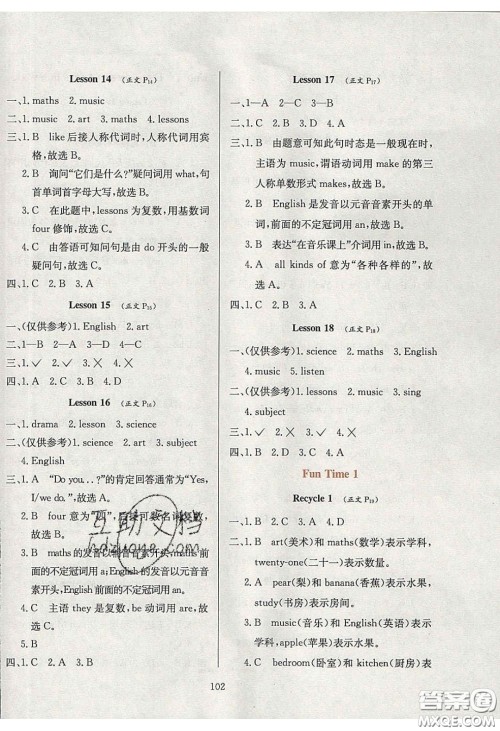 Lesson 14 (正文 P₁₄)
一、1. maths 2. music
二、1. music 2. art 3. maths 4. lessons
三、1. B like后接人称代词时,人称代词用宾
格,故选 B。
2. B 询问“它们是什么?”疑问词用 what,句
首单词首字母大写,故选 B。
3. C 在此题中,lessons 为复数,用基数词
four 修饰,故选 C。
4. C 由答语可知问句是由 do 开头的一般
疑问句,故选 C。
四、1. C 2. B 3. D 4. A
Lesson 15 (正文 P₁₅)
一、(仅供参考)1. English 2. art
二、1—B 2—A 3—D 4—C
三、1. ✓ 2. ✓ 3. ✗ 4. ✗
四、1. C 2. B 3. A 4. D
Lesson 16 (正文 P₁₆)
一、1. drama 2. lesson 3. music
二、(仅供参考)1. science 2. art 3. subject
4. English
三、1. A “Do you...?”的肯定回答通常为“Yes,
I/we do.”,故选 A。
2. B four 意为“四”,后接可数名词复数,
故选 B。
3. B maths 的发音以辅音音素开头,前面
的不定冠词用 a;English 的发音以元音音
素开头,前面的不定冠词用 an,故选 B。
4. C 主语 they 是复数,be 动词用 are,故
选 C。
5. B
四、1. C 2. A 3. D 4. B
Lesson 17 (正文 P₁₇)
一、1—A 2—C 3—B
二、1. C 2. B 3. A 4. D
三、1. B 由题意可知此句时态是一般现在时,
主语为 music,谓语动词用 make 的第三
人称单数形式 makes,故选 B。
2. B English 是发音以元音音素开头的单
词,前面的不定冠词用 an,故选 B。
3. B 表达“在音乐课上”介词用 in,故选 B。
4. A all kinds of 意为“各种各样的”,故
选 A。
四、1. C 2. B 3. A
Lesson 18 (正文 P₁₈)
一、(仅供参考)1. science 2. maths 3. English
4. music 5. listen
二、(仅供参考)1. lessons 2. music 3. sing
4. subject
三、1. ✓ 2. ✗ 3. ✓ 4. ✗
四、1. B 2. C 3. A 4. D
Fun Time 1
Recycle 1 (正文 P₁₉)
一、1. B art(美术)和 maths(数学)表示学科,
twenty-one(二十一)表示数量。
2. A pear(梨)和 banana(香蕉)表示水果,
study(书房)表示房间。
3. B music(音乐)和 English(英语)表示
学科,apple(苹果)表示水果。
4. C bedroom(卧室)和 kitchen(厨房)表
102
互助文档
hazuoye.com
答案圈
MXQE.COM